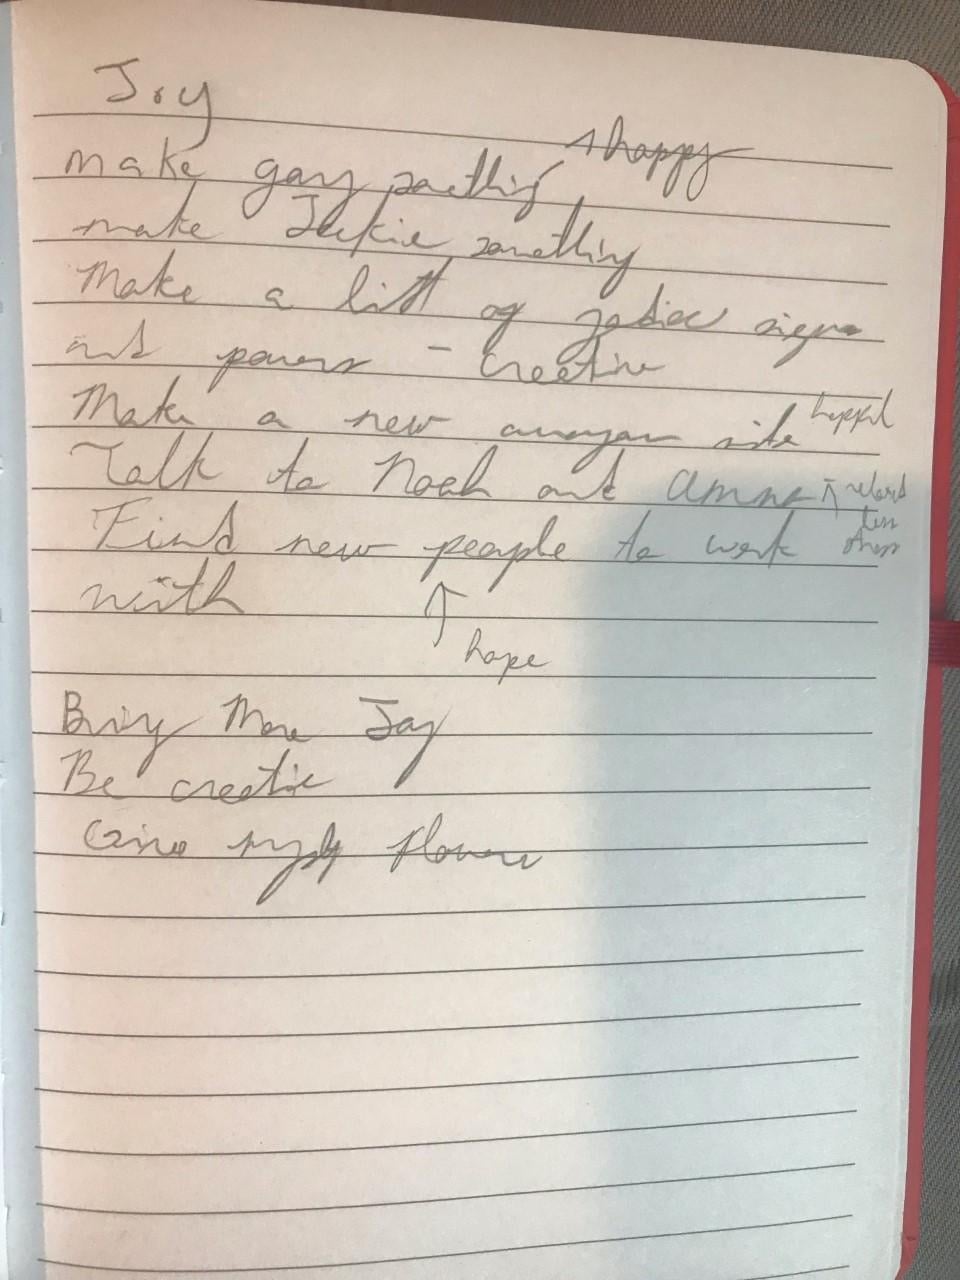 Joy
make gary something happy
make Jackie something
Make a list of zodiac signs
and powers - Creative
Make a new site helpful
Talk to Noah and
Find new people to work less stress
with
hope
Bring More Joy
Be creative
Give myself flowers